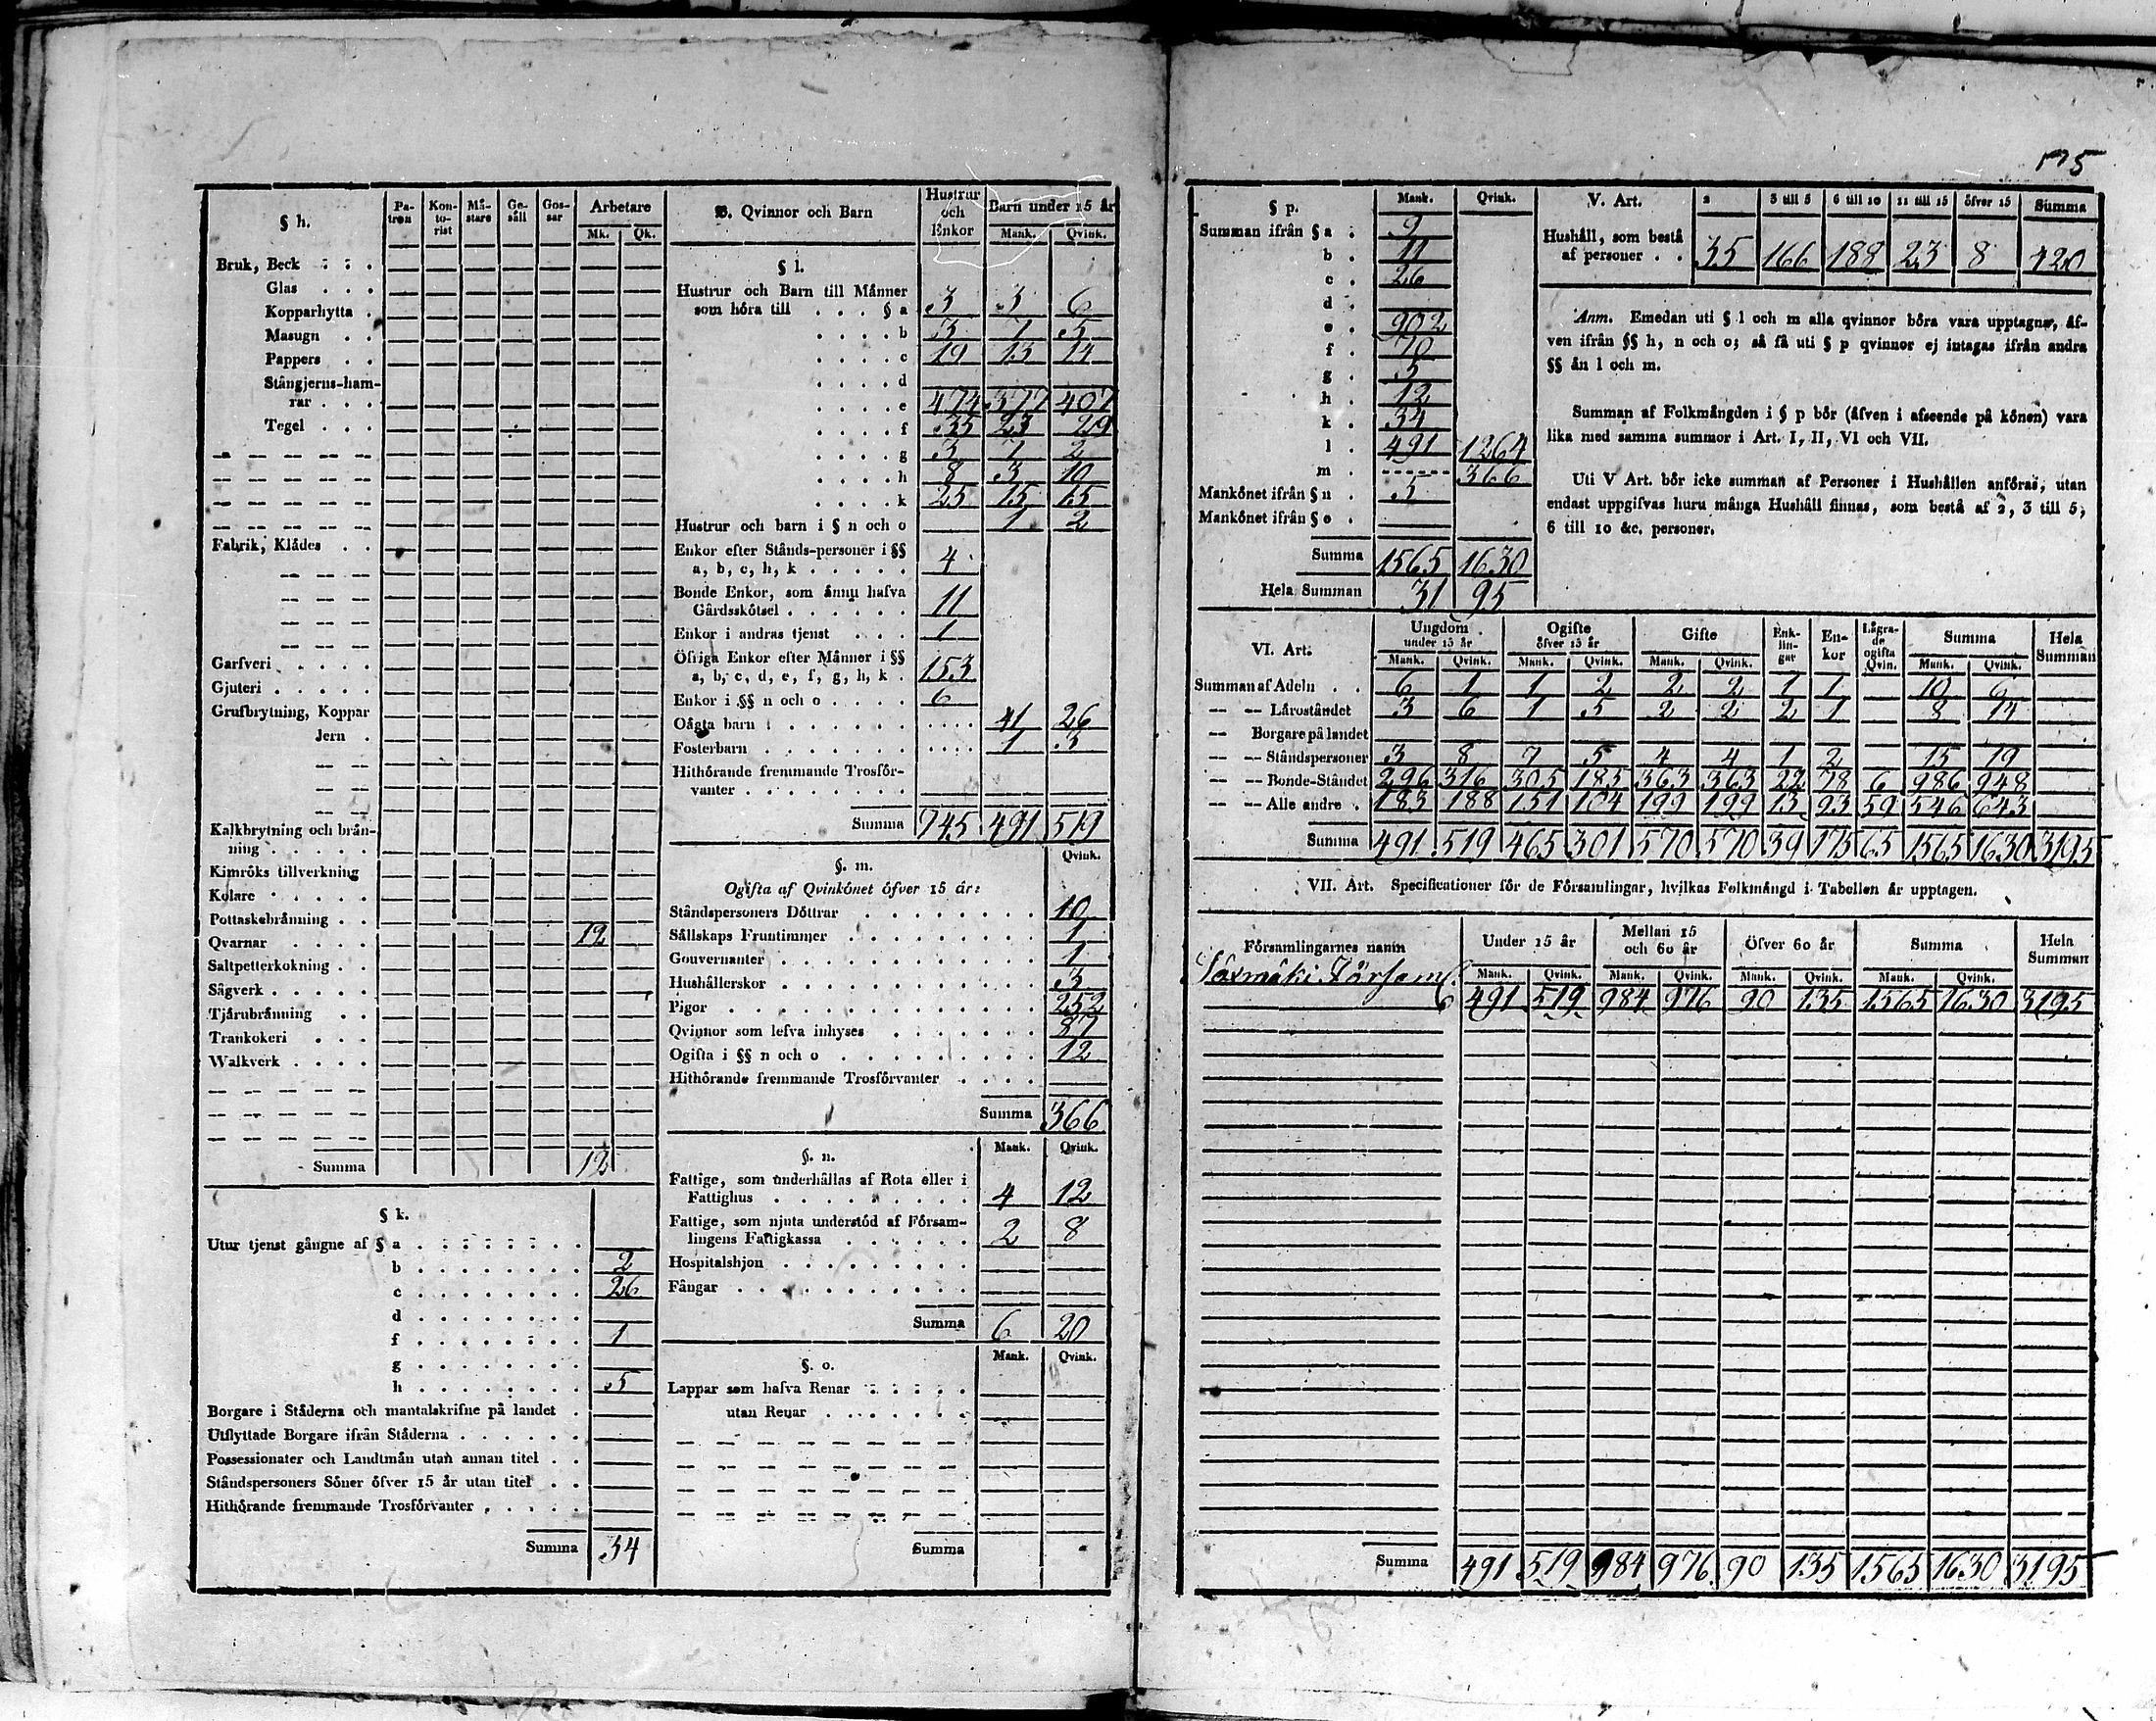 175
§ h.
Pa- tron
Kon- to- rist
Mä- stare
Ge- säll
Gos- sar
Arbetare
Mk. Qk.
Bruk, Beck . . .
Glas . . .
Kopparhytta .
Masugn . .
Pappers . .
Stångjerns-ham-
rar . . .
Tegel . . .
Fabrik, Klädes . .
Garfveri . . . .
Gjuteri . . . . .
Grufbrytning, Koppar
Jern .
Kalkbrytning och brän-
ning . . . . .
Kimröks tillverkning
Kolare . . . . .
Pottaskebränning . .
Qvarnar . . . . 12
Saltpetterkokning . .
Sågverk . . . . .
Tjärubränning . .
Trankokeri . . .
Walkverk . . . .
Summa 12
§ k.
Utur tjenst gångne af § a . . . . . . .
b . . . . . . . . 2
c . . . . . . . . 26
d . . . . . . . .
f . . . . . . . . 1
g . . . . . . . .
h . . . . . . . . 5
Borgare i Städerna och mantalskrifne på landet .
Utflyttade Borgare ifrån Städerna . . . . . .
Possessionater och Landtmän utan annan titel . .
Ståndspersoners Söner öfver 15 år utan titel . .
Hithörande fremmande Trosförvanter . . . . .
Summa 34
B. Qvinnor och Barn
Hustrur och Enkor
Barn under 15 år
Mank. Qvink.
§ l.
Hustrur och Barn till Männer
som höra till . . . § a 3 3 6
. . . . b 3 7 5
. . . . c 19 13 14
. . . . d
. . . . e 474 377 407
. . . . f 35 23 29
. . . . g 3 7 2
. . . . h 8 3 10
. . . . k 25 15 15
Hustrur och barn i § n och o 1 2
Enkor efter Stånds-personer i §§
a, b, c, h, k . . . . . 4
Bonde Enkor, som ännu hafva
Gårdsskötsel . . . . . . 11
Enkor i andras tjenst . . . 1
Öfriga Enkor efter Männer i §§
a, b, c, d, e, f, g, h, k . 153
Enkor i §§ n och o . . . . 6
Oägta barn . . . . . . . .... 41 26
Fosterbarn . . . . . . . .... 1 3
Hithörande fremmande Trosför-
vanter . . . . . . . .
Summa 745 491 519
§. m.
Qvink.
Ogifta af Qvinkönet öfver 15 år:
Ståndspersoners Döttrar . . . . . . . . 10
Sällskaps Fruntimmer . . . . . . . . 1
Gouvernanter . . . . . . . . . . . 1
Hushållerskor . . . . . . . . . . . 3
Pigor . . . . . . . . . . . . . 252
Qvinnor som lefva inhyses . . . . . . 87
Ogifta i §§ n och o . . . . . . . . . 12
Hithörande fremmande Trosförvanter . . . .
Summa 366
§. n.
Mank. Qvink.
Fattige, som underhållas af Rota eller i
Fattighus . . . . . . . . . 4 12
Fattige, som njuta understöd af Försam-
lingens Fattigkassa . . . . . . 2 8
Hospitalshjon . . . . . . . . .
Fångar . . . . . . . . . . .
Summa 6 20
§. o.
Mank. Qvink.
Lappar som hafva Renar . . . . .
utan Renar . . . . . . .
Summa
§ p.
Mank. Qvink.
Summan ifrån § a . 9
b . 11
c . 26
d .
e . 902
f . 70
g . 5
h . 12
k . 34
l . 491 1264
m . ------ 366
Mankönet ifrån § n . 5
Mankönet ifrån § o .
Summa 1565 1630
Hela Summan 3195
V. Art. 2 3 till 5 6 till 10 11 till 15 öfver 15 Summa
Hushåll, som bestå
af personer . . 35 166 188 23 8 420
Anm. Emedan uti § l och m alla qvinnor böra vara upptagne, äf-
ven ifrån §§ h, n och o; så få uti § p qvinnor ej intagas ifrån andra
§§ än l och m.
Summan af Folkmängden i § p bör (äfven i afseende på könen) vara
lika med samma summor i Art. I, II, VI och VII.
Uti V Art. bör icke summan af Personer i Hushållen anföras, utan
endast uppgifvas huru många Hushåll finnas, som bestå af 2, 3 till 5,
6 till 10 &c. personer.
VI. Art.
Ungdom under 15 år
Ogifte öfver 15 år
Gifte
Enk- lin- gar
En- kor
Lägra- de ogifta Qvin.
Summa
Hela Summan
Mank. Qvink. Mank. Qvink. Mank. Qvink. Mank. Qvink.
Summan af Adeln . . 6 1 1 2 2 2 1 1 10 6
— — Läroståndet 3 6 1 5 2 2 2 1 8 14
— Borgare på landet
— — Ståndspersoner 3 8 7 5 4 4 1 2 15 19
— — Bonde-Ståndet 296 316 305 185 363 363 22 78 6 986 948
— — Alle andre . 183 188 151 104 199 199 13 93 59 546 643
Summa 491 519 465 301 570 570 39 175 65 1565 1630 3195
VII. Art. Specificationer för de Församlingar, hvilkas Folkmängd i Tabellen är upptagen.
Församlingarnes namn
Under 15 år
Mellan 15 och 60 år
Öfver 60 år
Summa
Hela Summan
Mank. Qvink. Mank. Qvink. Mank. Qvink. Mank. Qvink.
Säxmäki Församl. 491 519 984 976 90 135 1565 1630 3195
Summa 491 519 984 976 90 135 1565 1630 3195